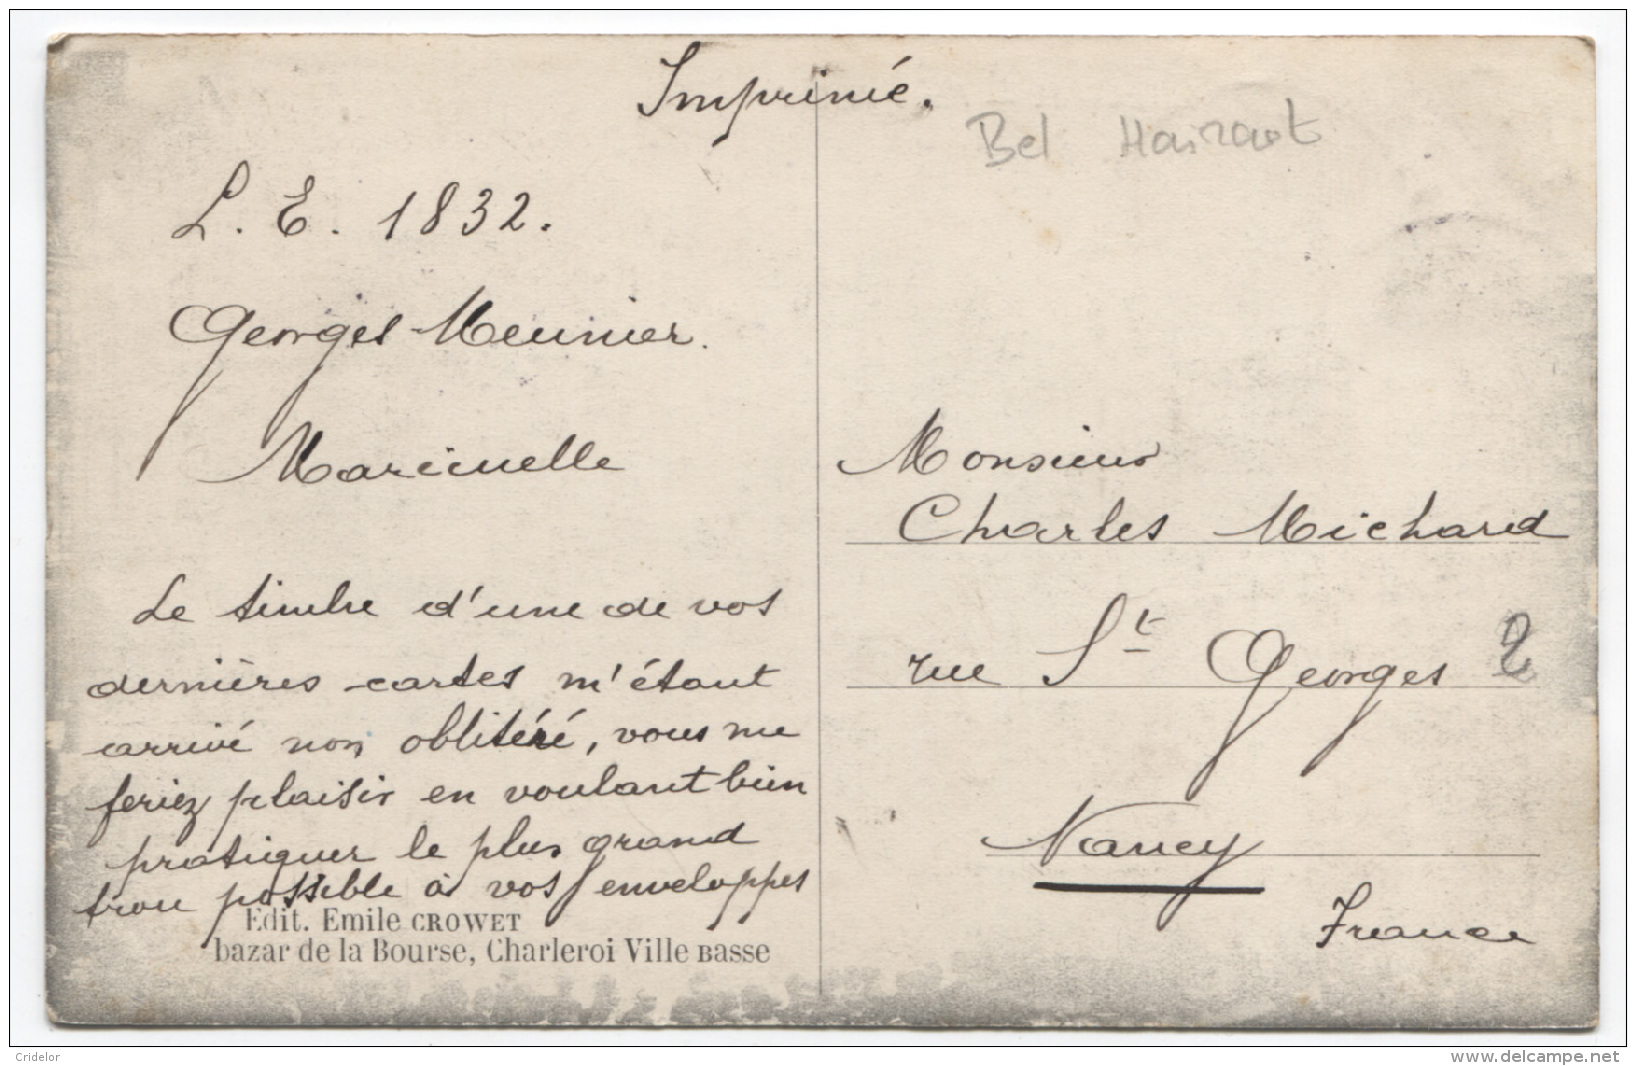 Imprimé.
Bel Hainaut
L. E. 1832.
Georges Meunier.
Marcinelle
Le timbre d'une de vos
dernières cartes m'étant
arrivé non oblitéré, vous me
feriez plaisir en voulant bien
pratiquer le plus grand
trou possible à vos enveloppes
Edit. Emile CROWET
bazar de la Bourse, Charleroi Ville Basse
Monsieur
Charles Michard
rue St Georges 2
Nancy
France
Cridelor
www.delcampe.net